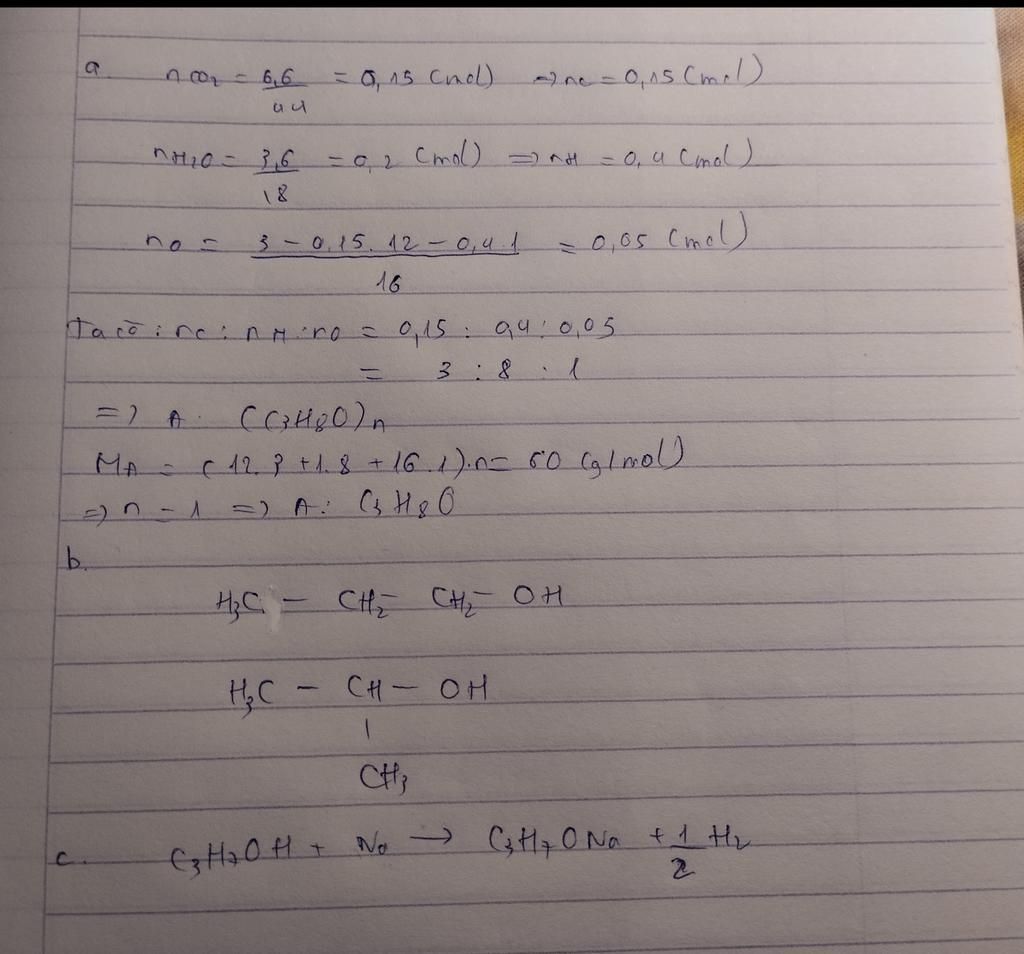 a. nCO2 = 6,6/44 = 0,15 (mol) => nC = 0,15 (mol)
nH2O = 3,6/18 = 0,2 (mol) => nH = 0,4 (mol)
nO = (3 - 0,15.12 - 0,4.1)/16 = 0,05 (mol)
Ta có : nC : nH : nO = 0,15 : 0,4 : 0,05
= 3 : 8 : 1
=> A : (C3H8O)n
MA = (12.3 + 1.8 + 16.1).n = 60 (g/mol)
=> n = 1 => A : C3H8O
b.
H3C - CH2 - CH2 - OH
H3C - CH - OH
|
CH3
c. C3H7OH + Na → C3H7ONa + 1/2 H2